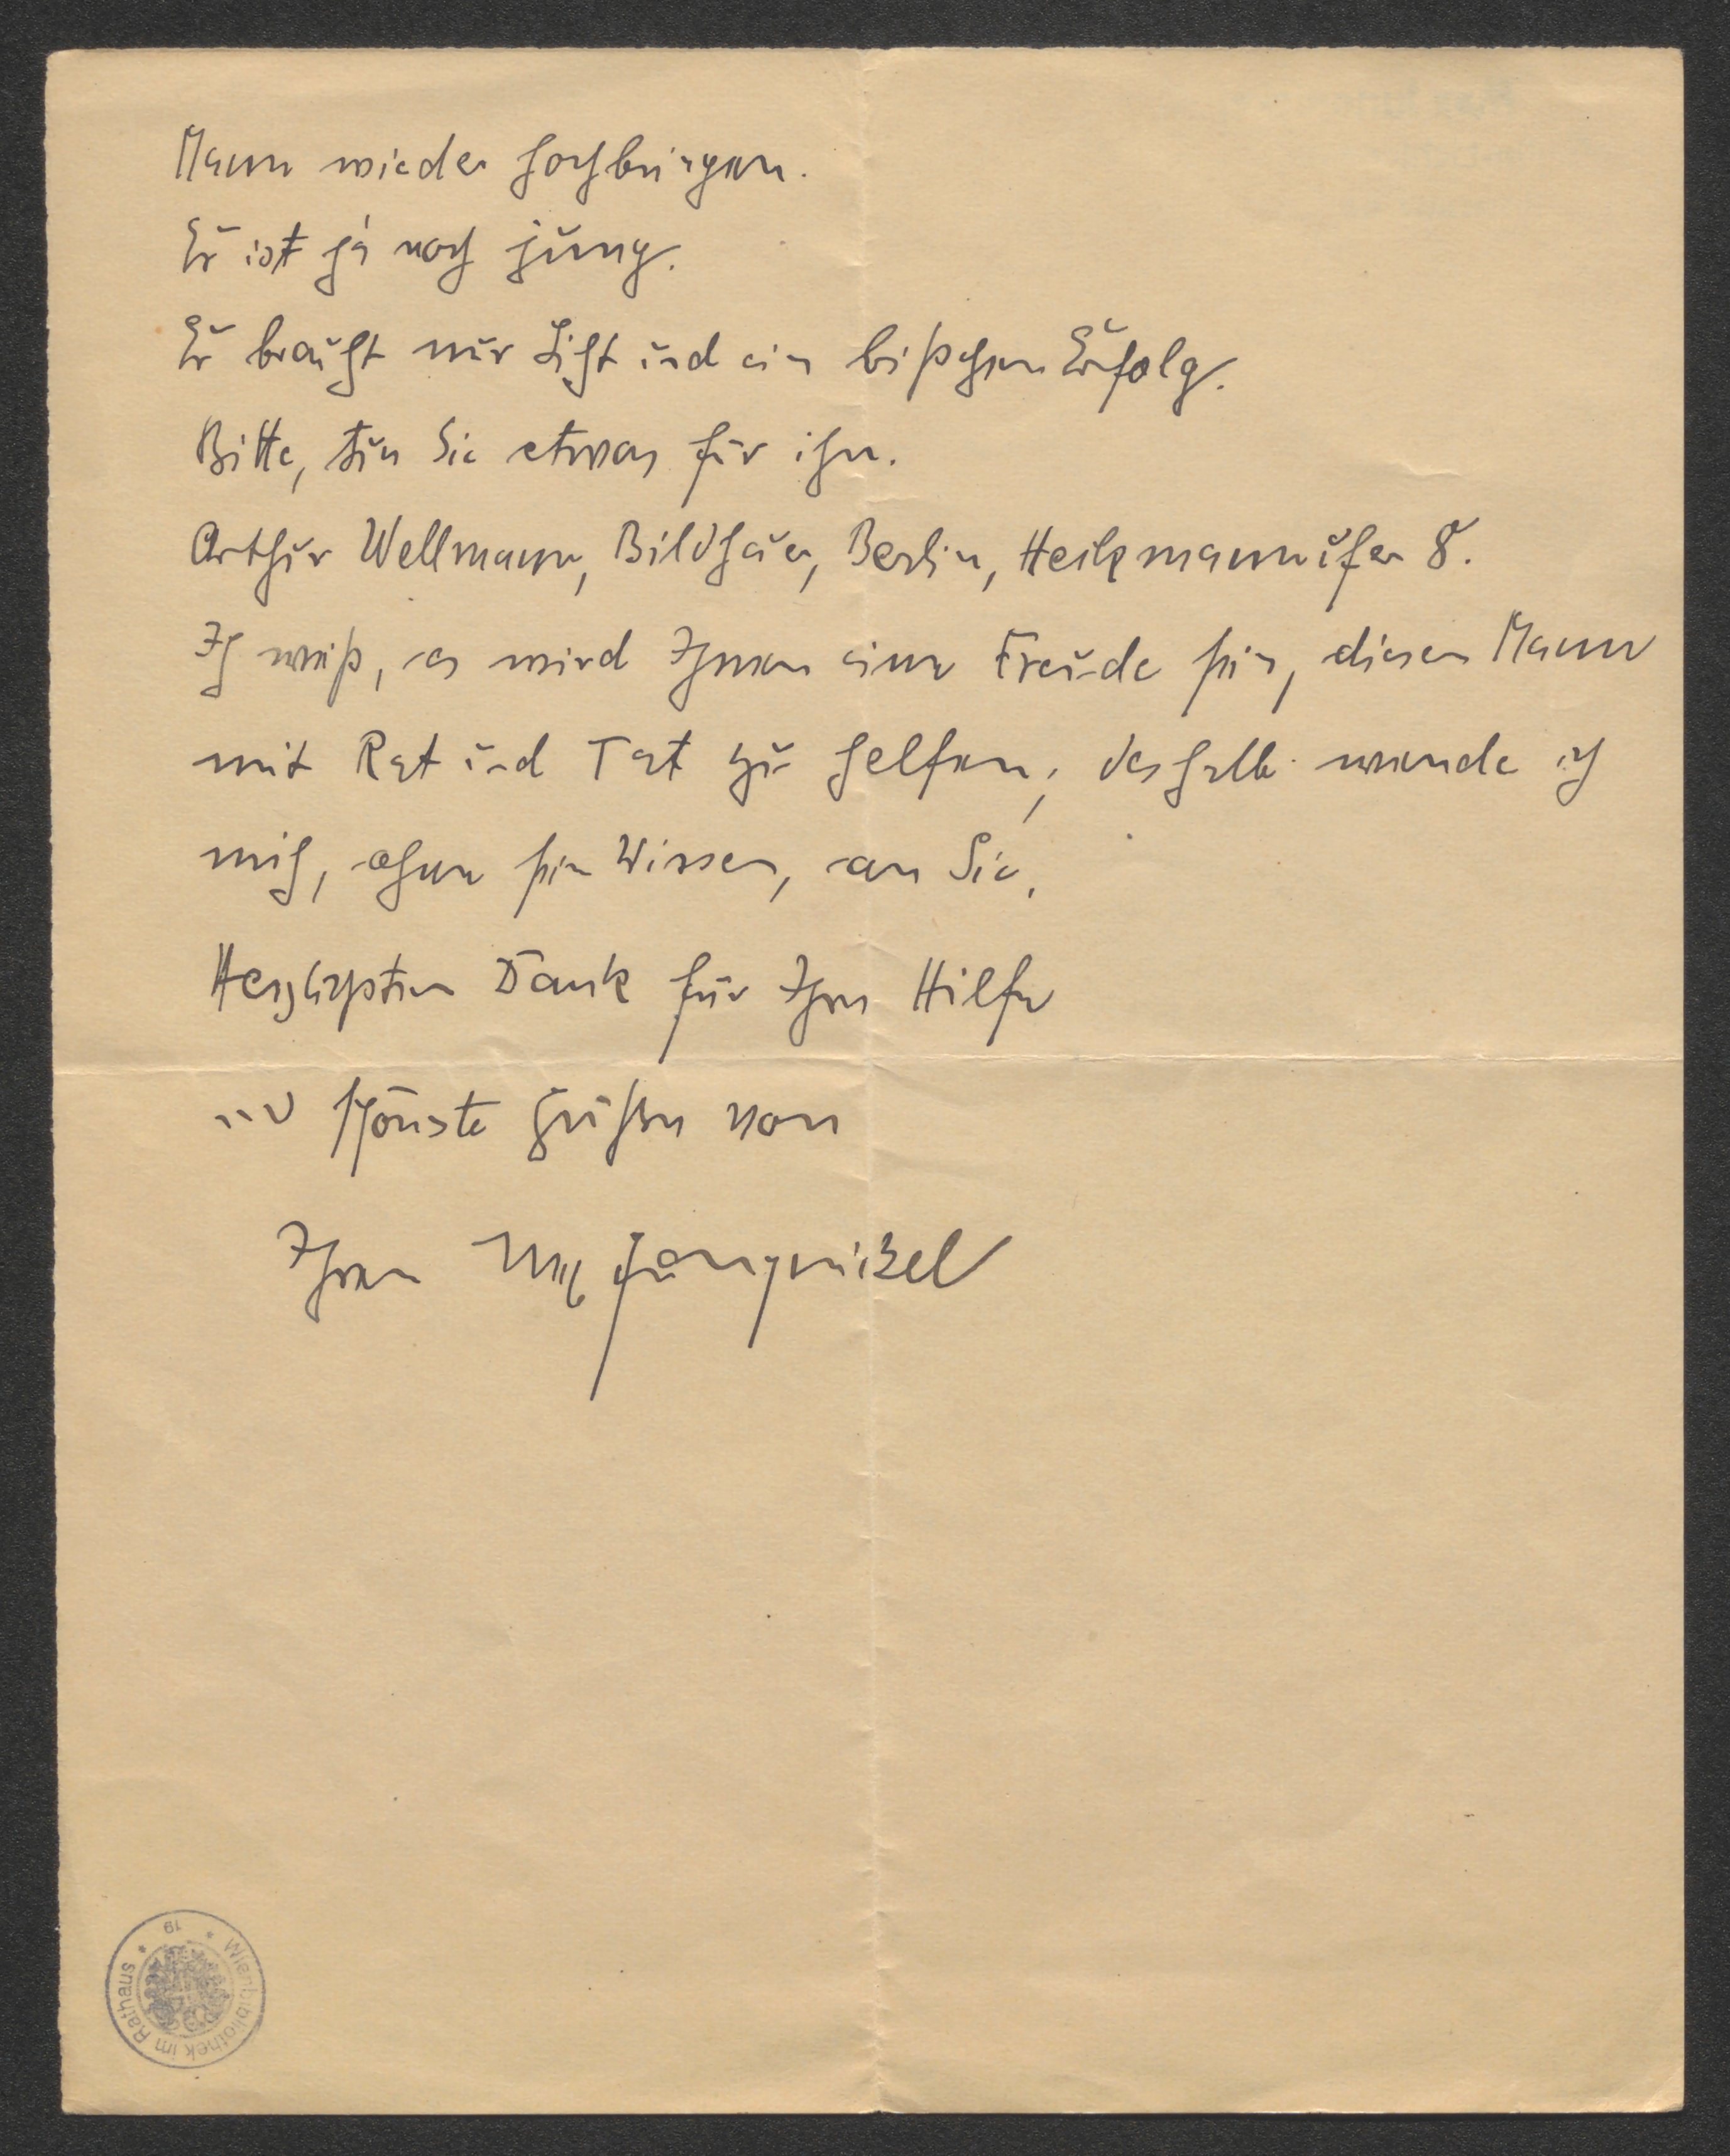 Mann wieder hochbringen.
Er ist ja noch jung.
Er braucht nur Licht und ein bißchen Erfolg.
Bitte, tun Sie etwas für ihn.
Arthur Wellmann, Bildhauer, Berlin, Heckmannufer 8.
Ich weiß, es wird Ihnen eine Freude sein, diesen Mann
mit Rat und Tat zu helfen, deshalb wende ich
mich, ohne sein Wissen, an Sie.
Herzlichsten Dank für Ihre Hilfe
und schönste Grüße von
Ihrem Max Jungnickel
Wienbibliothek im Rathaus * 19 *